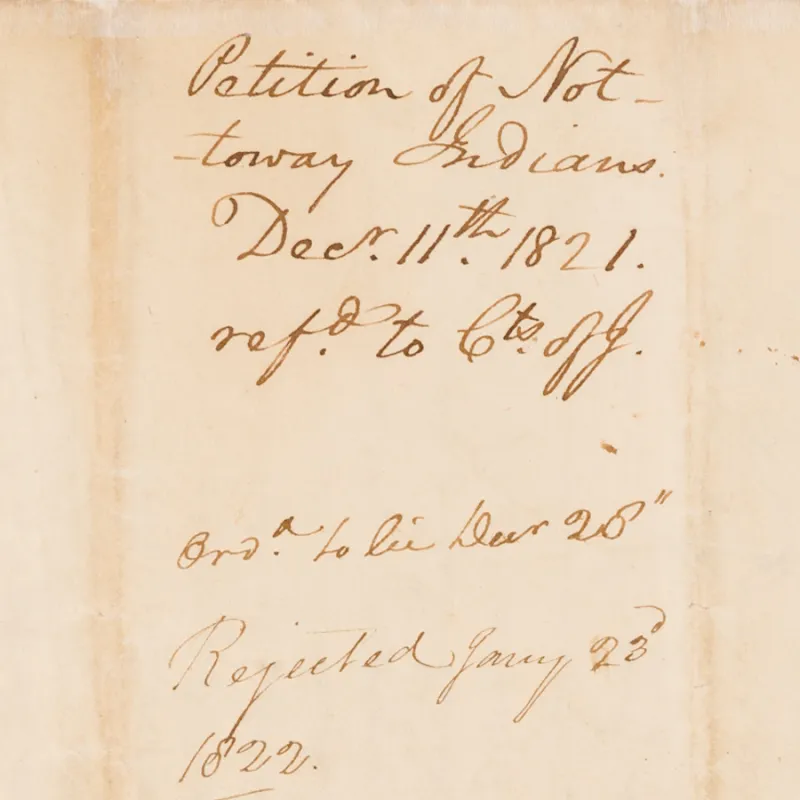 Petition of Not-
-toway Indians.
Decr. 11th. 1821.
refd. to Cts. of J.
Ordd. to lie Decr 28"
Rejected Jany 23d
1822.